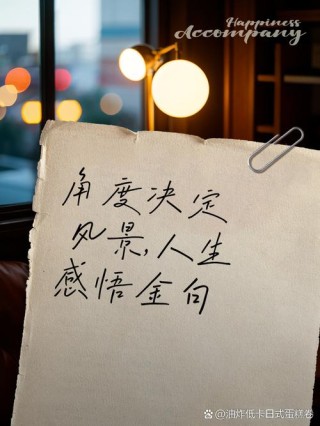 Happiness
Accompany
角度决定
风景,人生
感悟金句
@油炸低卡日式蛋糕卷